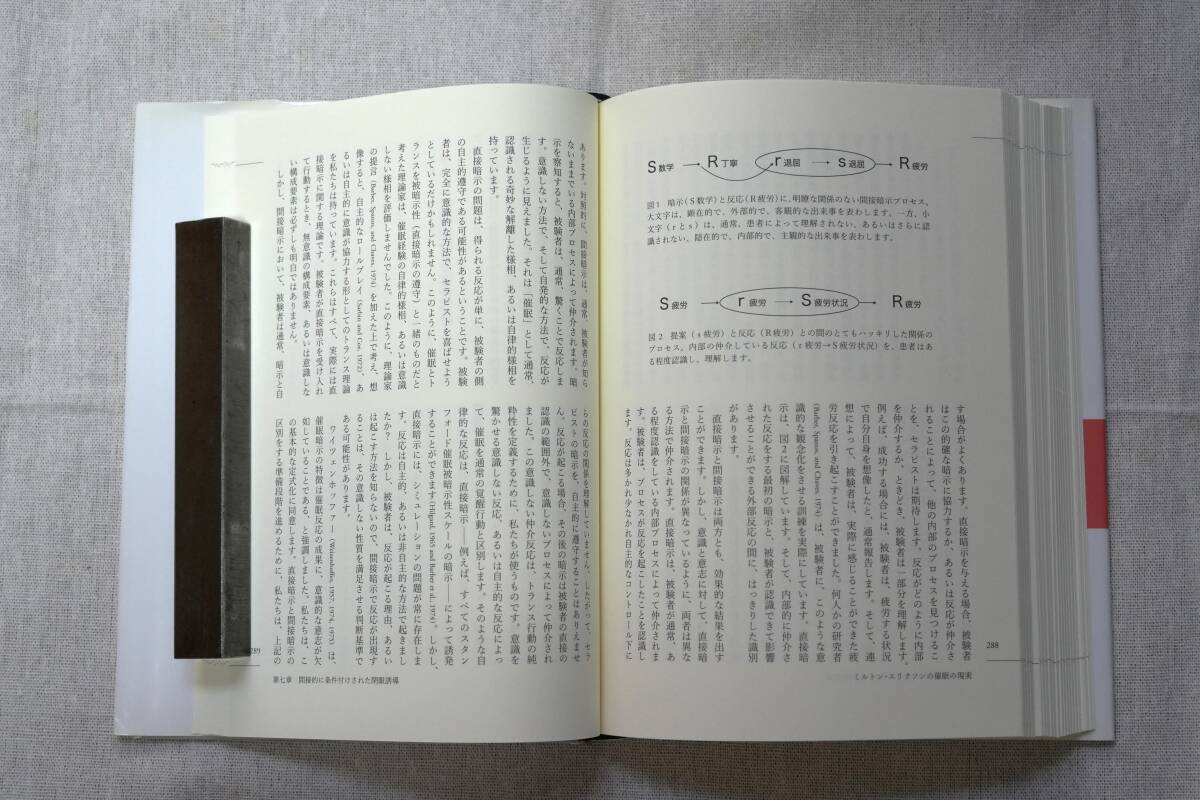 S数学 → R丁寧 r退屈 → s退屈 → R疲労
図1 暗示(S数学)と反応(R疲労)に、明瞭な関係のない間接暗示プロセス、
大文字は、顕在的で、外部的で、客観的な出来事を表わします。一方、小
文字(rとs)は、通常、患者によって理解されない、あるいはさらに認
識されない、隠在的で、内部的で、主観的な出来事を表わします。
S疲労 → r疲労 → S疲労状況 → R疲労
図2 提案(s疲労)と反応(R疲労)との間のとてもハッキリした関係の
プロセス。内部の仲介している反応(r疲労→S疲労状況)を、患者はあ
る程度認識し、理解します。
す場合がよくあります。直接暗示を与える場合、被験者
はこの的確な暗示に協力するか、あるいは反応が仲介さ
れることによって、他の内部のプロセスを見つけるこ
とを、セラピストは期待します。反応がどのように内部
を仲介するか、ときどき、被験者は一部分を理解します。
例えば、成功する場合には、被験者は、疲労する状況
で自分自身を想像したと、通常報告します。そして、連
想によって、被験者は、実際に感じることができた疲
労反応を引き起こすことができました。何人かの研究者
(Barber, Spanos, and Chaves, 1974) は、被験者に、このような意
識的な観念化をさせる訓練を実際にしています。直接暗
示は、図2に図解しています。そして、内部的に仲介さ
れた反応をする最初の暗示と、被験者が認識できて影響
させることができる外部反応の間に、はっきりした識別
があります。
直接暗示と間接暗示は両方とも、効果的な結果を出す
ことができます。しかし、意識と意志に対して、直接暗
示と間接暗示の関係が異なっているように、両者は異な
る方法で仲介されます。直接暗示は、被験者が通常、あ
る程度認識をしている内部プロセスによって仲介されま
す。被験者は、プロセスが反応を起こしたことを認識し
ます。反応は多かれ少なかれ自主的なコントロール下に
288
ミルトン・エリクソンの催眠の現実
あります。対照的に、間接暗示は、通常、被験者が知ら
ないままでいる内部プロセスによって仲介されます。暗
示を察知すると、被験者は、通常、驚くことで反応しま
す。意識しない方法で、そして自発的な方法で、反応が
生じるように見えました。それは「催眠」として通常、
認識される奇妙な解離した様相、あるいは自律的様相を
持っています。
直接暗示の問題は、得られる反応が単に、被験者の側
の自主的遵守である可能性があるということです。被験
者は、完全に意識的な方法で、セラピストを喜ばせよう
としているだけかもしれません。このように、催眠とト
ランスを被暗示性(直接暗示の遵守)と一緒のものだと
考えた理論家は、催眠経験の自律的様相、あるいは意識
しない様相を評価しませんでした。このように、理論家
の提言 (Barber, Spanos, and Chaves, 1974) を加えた上で考え、想
像すると、自主的なロールプレイ (Sarbin and Coe, 1972)、あ
るいは自主的に意識が協力する形としてのトランス理論
を私たちは持っています。これらはすべて、実際には直
接暗示に関する理論です。被験者が直接暗示を受け入れ
て行動するとき、無意識の構成要素、あるいは意識しな
い構成要素は必ずしも明白ではありません。
しかし、間接暗示において、被験者は通常、暗示と自
らの反応の関係を理解していません。したがって、セラ
ピストの暗示を、自主的に遵守することはありえませ
ん。反応が起こる場合、その後の暗示は被験者の直接の
認識の範囲外で、意識しないプロセスによって仲介され
ました。この意識しない仲介反応は、トランス行動の純
粋性を定義するために、私たちが使うものです。意識を
驚かせる意識しない反応、あるいは自主的な反応によっ
て、催眠を通常の覚醒行動と区別します。そのような自
律的な反応は、直接暗示――例えば、すべてのスタン
フォード催眠被暗示性スケールの暗示――によって誘発
することができます (Hilgard, 1965 and Barber et al., 1974)。しかし、
直接暗示には、シミュレーションの問題が常に存在しま
す。反応は自主的、あるいは非自主的な方法で起きまし
たか? しかし、被験者は、反応が起こる理由、あるい
は起こす方法を知らないので、間接暗示で反応が出現す
ることは、その意識しない性質を満足させる判断基準で
ある可能性があります。
ワイツェンホッファー (Weitzenhoffer, 1957, 1974, 1975) は、
催眠暗示の特徴は催眠反応の成果に、意識的な意志が欠
如していることである、と強調しました。私たちは、こ
の基本的な定式化に同意します。直接暗示と間接暗示の
区別をする準備段階を進めるために、私たちは、上記の
289
第七章 間接的に条件付けされた閉眼誘導